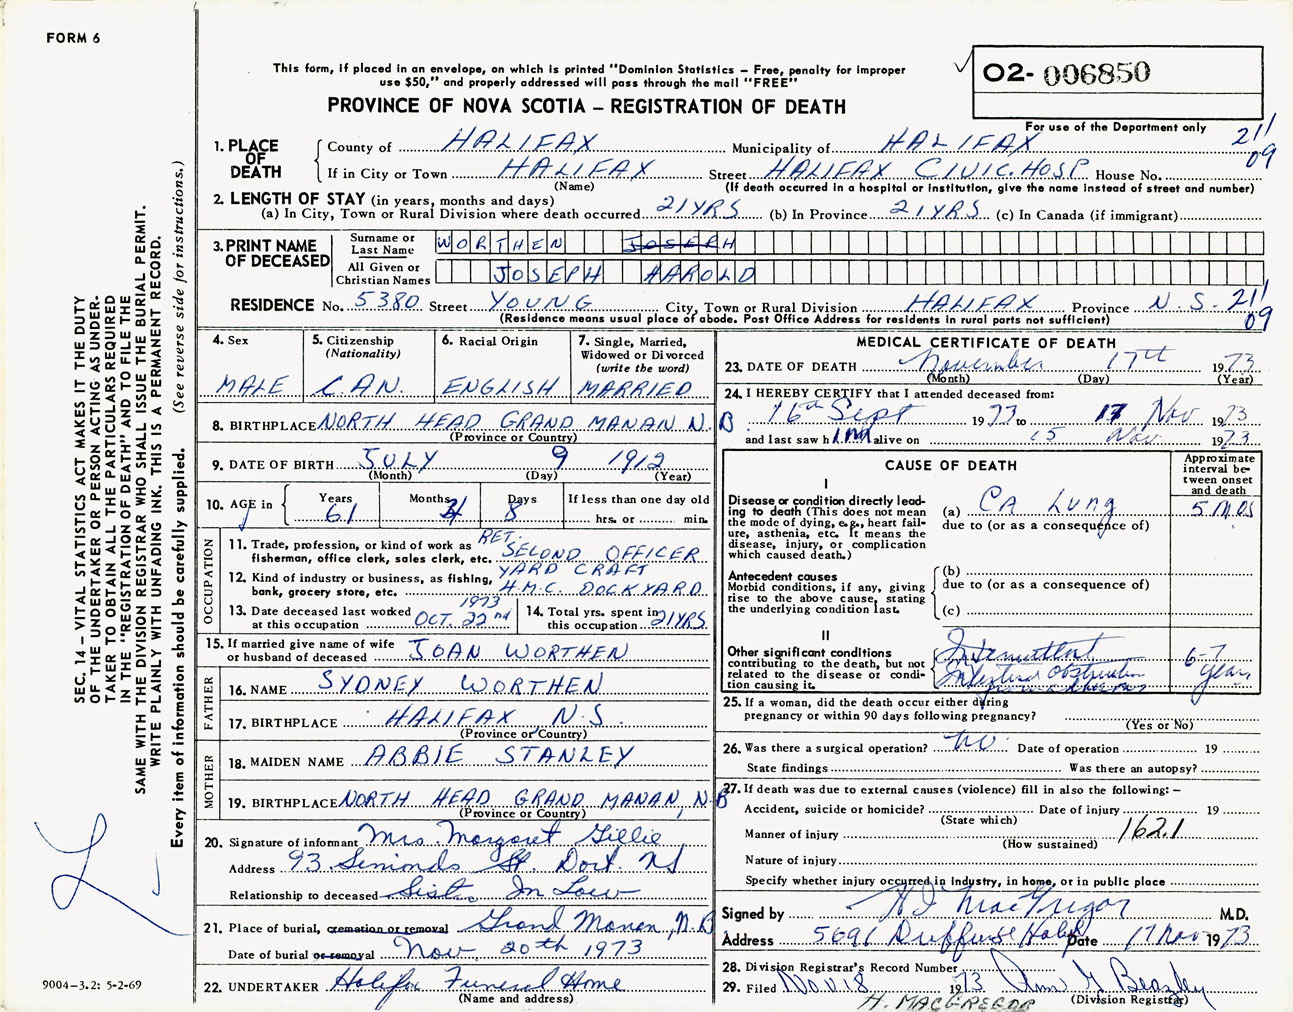 FORM 6
This form, if placed in an envelope, on which is printed "Dominion Statistics – Free, penalty for improper
use $50," and properly addressed will pass through the mail "FREE"
O2- 006850
PROVINCE OF NOVA SCOTIA – REGISTRATION OF DEATH
For use of the Department only
21/
09
1. PLACE OF DEATH
County of HALIFAX Municipality of HALIFAX
If in City or Town HALIFAX Street HALIFAX CIVIC. HOSP House No.
(Name) (If death occurred in a hospital or institution, give the name instead of street and number)
2. LENGTH OF STAY (in years, months and days)
(a) In City, Town or Rural Division where death occurred 21 YRS (b) In Province 21 YRS (c) In Canada (if immigrant)
3. PRINT NAME OF DECEASED
Surname or Last Name WORTHEN JOSEPH
All Given or Christian Names JOSEPH HAROLD
RESIDENCE No. 5380 Street YOUNG City, Town or Rural Division HALIFAX Province N.S. 21/
(Residence means usual place of abode. Post Office Address for residents in rural parts not sufficient) 09
4. Sex MALE
5. Citizenship (Nationality) CAN.
6. Racial Origin ENGLISH
7. Single, Married, Widowed or Divorced (write the word) MARRIED
8. BIRTHPLACE NORTH HEAD GRAND MANAN N.B
(Province or Country)
9. DATE OF BIRTH JULY 9 1912
(Month) (Day) (Year)
10. AGE in Years 61 Months 4 Days 8 If less than one day old hrs. or min.
OCCUPATION
11. Trade, profession, or kind of work as fisherman, office clerk, sales clerk, etc. RET. SECOND OFFICER
12. Kind of industry or business, as fishing, bank, grocery store, etc. YARD CRAFT H.M.C. DOCKYARD
13. Date deceased last worked at this occupation OCT. 22nd 1973
14. Total yrs. spent in this occupation 21 YRS
15. If married give name of wife or husband of deceased JOAN WORTHEN
FATHER
16. NAME SYDNEY WORTHEN
17. BIRTHPLACE HALIFAX N.S.
(Province or Country)
MOTHER
18. MAIDEN NAME ABBIE STANLEY
19. BIRTHPLACE NORTH HEAD GRAND MANAN, N.B
(Province or Country)
20. Signature of informant Mrs. Margaret Gillie
Address 93 Simonds St. Dart. NS
Relationship to deceased Sister In Law
21. Place of burial, cremation or removal Grand Manan, N.B
Date of burial or removal Nov. 20th 1973
22. UNDERTAKER Halifax Funeral Home
(Name and address)
MEDICAL CERTIFICATE OF DEATH
23. DATE OF DEATH November 17th 1973
(Month) (Day) (Year)
24. I HEREBY CERTIFY that I attended deceased from:
16th Sept 1973 to 17 Nov 1973
and last saw h im alive on 15 Nov 1973
CAUSE OF DEATH
Approximate interval between onset and death
I
Disease or condition directly leading to death (This does not mean the mode of dying, e.g., heart failure, asthenia, etc. It means the disease, injury, or complication which caused death.)
(a) CA Lung 5 MOS
due to (or as a consequence of)
Antecedent causes
Morbid conditions, if any, giving rise to the above cause, stating the underlying condition last.
(b)
due to (or as a consequence of)
(c)
II
Other significant conditions contributing to the death, but not related to the disease or condition causing it.
Intermittent
Intestinal Obstruction
6-7 years
25. If a woman, did the death occur either during pregnancy or within 90 days following pregnancy?
(Yes or No)
26. Was there a surgical operation? no. Date of operation 19
State findings Was there an autopsy?
27. If death was due to external causes (violence) fill in also the following: –
Accident, suicide or homicide? Date of injury 19
(State which)
Manner of injury 162.1
(How sustained)
Nature of injury
Specify whether injury occurred in industry, in home, or in public place
Signed by H J MacGregor M.D.
Address 5691 Date 17 Nov 1973
28. Division Registrar's Record Number
29. Filed NOV 18 1973 Ann G Beazley
H. MACGREGOR (Division Registrar)
SEC. 14 – VITAL STATISTICS ACT MAKES IT THE DUTY
OF THE UNDERTAKER OR PERSON ACTING AS UNDER-
TAKER TO OBTAIN ALL THE PARTICULARS REQUIRED
IN THE "REGISTRATION OF DEATH" AND TO FILE THE
SAME WITH THE DIVISION REGISTRAR WHO SHALL ISSUE THE BURIAL PERMIT.
WRITE PLAINLY WITH UNFADING INK. THIS IS A PERMANENT RECORD.
Every item of information should be carefully supplied. (See reverse side for instructions.)
9004-3.2: 5-2-69